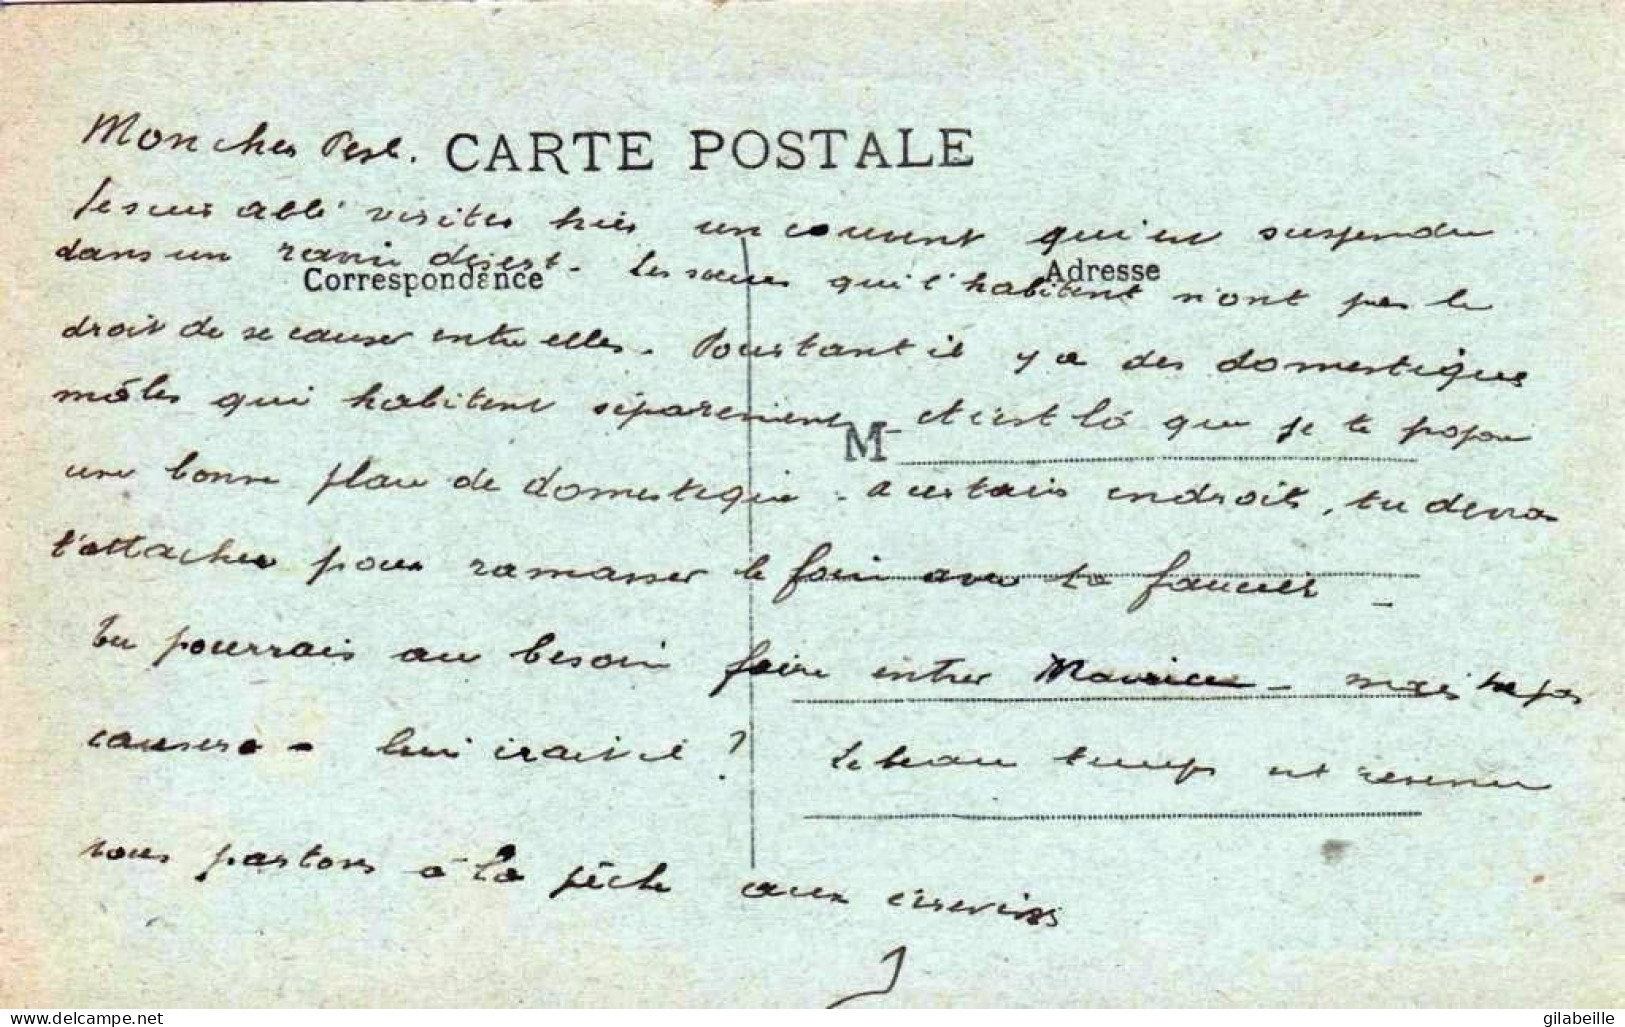 Mon cher CARTE POSTALE
Je suis allé visiter hier un couvent qui est suspendu
dans un ravin désert. Les sœurs qui l'habitent n'ont pas le
Correspondance Adresse
droit de se causer entre elles. Pourtant il y a des domestiques
mâles qui habitent séparément et c'est là que je te propose
M
une bonne place de domestique. a certains endroits, tu devras
t'attacher pour ramasser le foin avec ta faucille
Tu pourrais au besoin faire entrer Maurice mais ne pas
causera - lui irait il ? Le beau temps est revenu
nous partons à la pêche aux écrevisses
delcampe.net
gilabeille